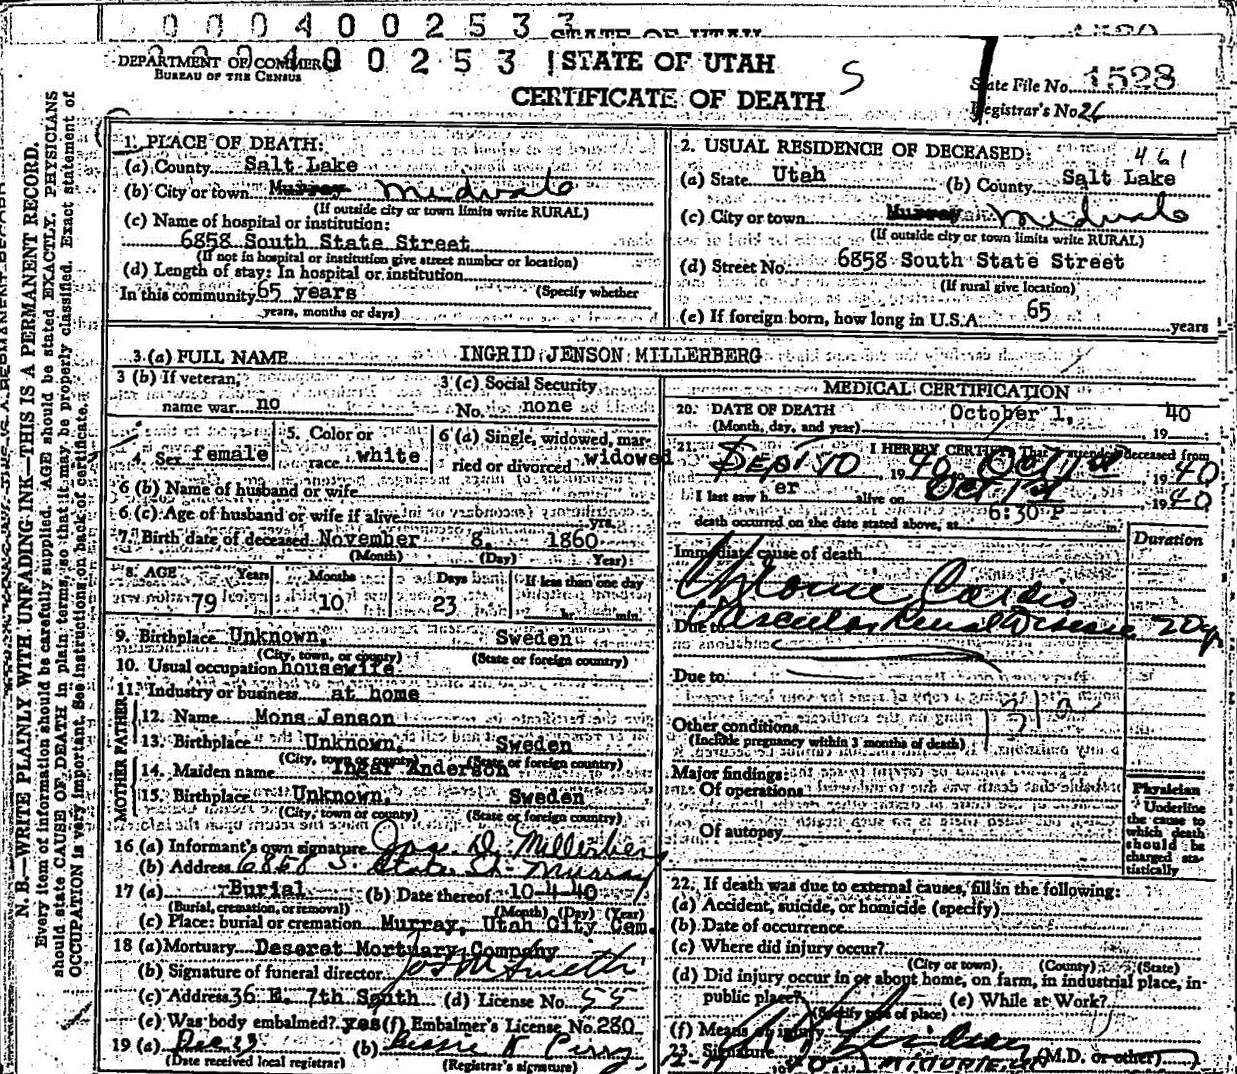 0 0 0 4 0 0 2 5 3 3
STATE OF UTAH
0 0 0 4 0 0 2 5 3
DEPARTMENT OF COMMERCE
BUREAU OF THE CENSUS
STATE OF UTAH
CERTIFICATE OF DEATH
S
State File No. 1528
Registrar's No. 26
N. B.—WRITE PLAINLY WITH UNFADING INK—THIS IS A PERMANENT RECORD.
Every item of information should be carefully supplied. AGE should be stated EXACTLY. PHYSICIANS
should state CAUSE OF DEATH in plain terms, so that it may be properly classified. Exact statement of
OCCUPATION is very important. See instructions on back of certificate.
1. PLACE OF DEATH:
(a) County Salt Lake
(b) City or town Murray Midvale
(If outside city or town limits write RURAL)
(c) Name of hospital or institution:
6858 South State Street
(If not in hospital or institution give street number or location)
(d) Length of stay: In hospital or institution
In this community 65 years (Specify whether
years, months or days)
2. USUAL RESIDENCE OF DECEASED: 461
(a) State Utah (b) County Salt Lake
(c) City or town Murray Midvale
(If outside city or town limits write RURAL)
(d) Street No. 6858 South State Street
(If rural give location)
(e) If foreign born, how long in U.S.A. 65 years
3. (a) FULL NAME INGRID JENSON MILLERBERG
3 (b) If veteran, name war no
3 (c) Social Security No. none
4. Sex female
5. Color or race white
6 (a) Single, widowed, married or divorced widowed
6 (b) Name of husband or wife
6 (c) Age of husband or wife if alive yrs.
7. Birth date of deceased November 8, 1860
(Month) (Day) Year)
8. AGE Years Months Days If less than one day
79 10 23 hr. min.
9. Birthplace Unknown, Sweden
(City, town, or county) (State or foreign country)
10. Usual occupation housewife
11. Industry or business at home
FATHER
12. Name Mons Jenson
13. Birthplace Unknown, Sweden
(City, town or county) (State or foreign country)
MOTHER
14. Maiden name Ingar Anderson
15. Birthplace Unknown, Sweden
(City, town or county) (State or foreign country)
16 (a) Informant's own signature D. Millerberg
(b) Address 6858 S. State St. Murray
17 (a) Burial (b) Date thereof 10-4-40
(Burial, cremation, or removal) (Month) (Day) (Year)
(c) Place: burial or cremation Murray, Utah City Cem.
18 (a) Mortuary Deseret Mortuary Company
(b) Signature of funeral director
(c) Address 36 E. 7th South (d) License No. 55
(e) Was body embalmed? yes (f) Embalmer's License No. 280
19 (a) (b)
(Date received local registrar) (Registrar's signature)
MEDICAL CERTIFICATION
20. DATE OF DEATH October 1, 1940
(Month, day, and year)
21. I HEREBY CERTIFY That I attended deceased from
Sept 10 1940 Oct 1st 1940
I last saw her alive on Oct 1st 1940
death occurred on the date stated above, at 6:30 P m.
Duration
Immediate cause of death
Chronic Cardio
Due to Vascular Renal Disease
Due to
Other conditions
(Include pregnancy within 3 months of death)
Major findings:
Of operations
Of autopsy
Physician
Underline
the cause to
which death
should be
charged sta-
tistically
22. If death was due to external causes, fill in the following:
(a) Accident, suicide, or homicide (specify)
(b) Date of occurrence
(c) Where did injury occur?
(City or town) (County) (State)
(d) Did injury occur in or about home, on farm, in industrial place, in
public place? (e) While at Work?
(Specify type of place)
(f) Means of injury
23. Signature (M.D. or other)